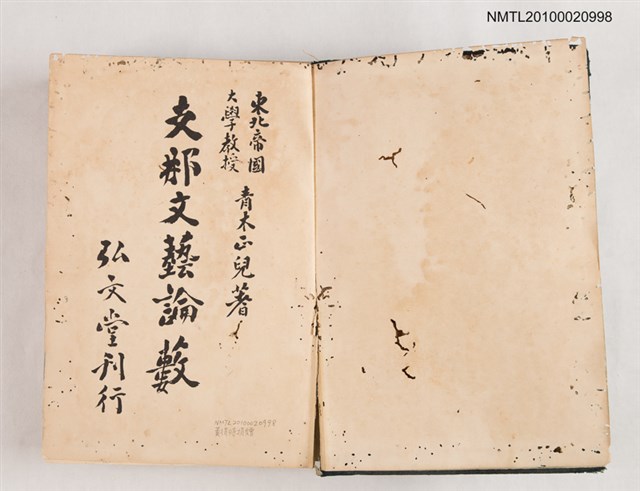 NMTL20100020998
東北帝國
大學教授
青木正兒著
支那文藝論藪
弘文堂刊行